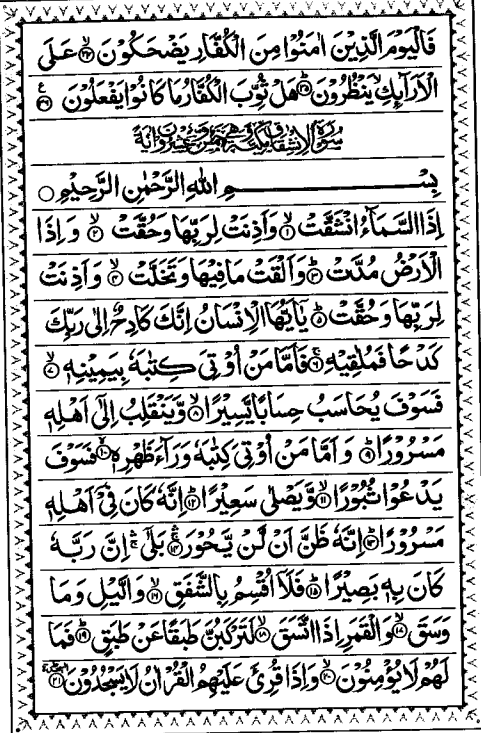 فَالْيَوْمَ الَّذِيْنَ اٰمَنُوْا مِنَ الْكُفَّارِ يَضْحَكُوْنَ ۙ‏﴿۳۴﴾ عَلَى
الْاَرَآىِٕكِ ۙ يَنْظُرُوْنَ ؕ‏﴿۳۵﴾ هَلْ ثُوِّبَ الْكُفَّارُ مَا كَانُوْا يَفْعَلُوْنَ ‏﴿۳۶﴾
بِسْمِ اللّٰهِ الرَّحْمٰنِ الرَّحِيْمِ
اِذَا السَّمَآءُ انْشَقَّتْ ۙ‏﴿۱﴾ وَاَذِنَتْ لِرَبِّهَا وَحُقَّتْ ۙ‏﴿۲﴾ وَاِذَا
الْاَرْضُ مُدَّتْ ؕ‏﴿۳﴾ وَاَلْقَتْ مَا فِيْهَا وَتَخَلَّتْ ۙ‏﴿۴﴾ وَاَذِنَتْ
لِرَبِّهَا وَحُقَّتْ ؕ‏﴿۵﴾ يٰۤاَيُّهَا الْاِنْسَانُ اِنَّكَ كَادِحٌ اِلٰى رَبِّكَ
كَدْحًا فَمُلٰقِيْهِ ۚ‏﴿۶﴾ فَاَمَّا مَنْ اُوْتِيَ كِتٰبَهٗ بِيَمِيْنِهٖ ۙ‏﴿۷﴾
فَسَوْفَ يُحَاسَبُ حِسَابًا يَّسِيْرًا ۙ‏﴿۸﴾ وَّيَنْقَلِبُ اِلٰۤى اَهْلِهٖ
مَسْرُوْرًا ؕ‏﴿۹﴾ وَاَمَّا مَنْ اُوْتِيَ كِتٰبَهٗ وَرَآءَ ظَهْرِهٖ ۙ‏﴿۱۰﴾ فَسَوْفَ
يَدْعُوْا ثُبُوْرًا ۙ‏﴿۱۱﴾ وَّيَصْلٰى سَعِيْرًا ؕ‏﴿۱۲﴾ اِنَّهٗ كَانَ فِيْۤ اَهْلِهٖ
مَسْرُوْرًا ؕ‏﴿۱۳﴾ اِنَّهٗ ظَنَّ اَنْ لَّنْ يَّحُوْرَ ۚۛ‏﴿۱۴﴾ بَلٰۤى ۚۛ اِنَّ رَبَّهٗ
كَانَ بِهٖ بَصِيْرًا ؕ‏﴿۱۵﴾ فَلَاۤ اُقْسِمُ بِالشَّفَقِ ۙ‏﴿۱۶﴾ وَالَّيْلِ وَمَا
وَسَقَ ۙ‏﴿۱۷﴾ وَالْقَمَرِ اِذَا اتَّسَقَ ۙ‏﴿۱۸﴾ لَتَرْكَبُنَّ طَبَقًا عَنْ طَبَقٍ ؕ‏﴿۱۹﴾ فَمَا
لَهُمْ لَا يُؤْمِنُوْنَ ۙ‏﴿۲۰﴾ وَاِذَا قُرِئَ عَلَيْهِمُ الْقُرْاٰنُ لَا يَسْجُدُوْنَ ؕ‏﴿۲۱﴾